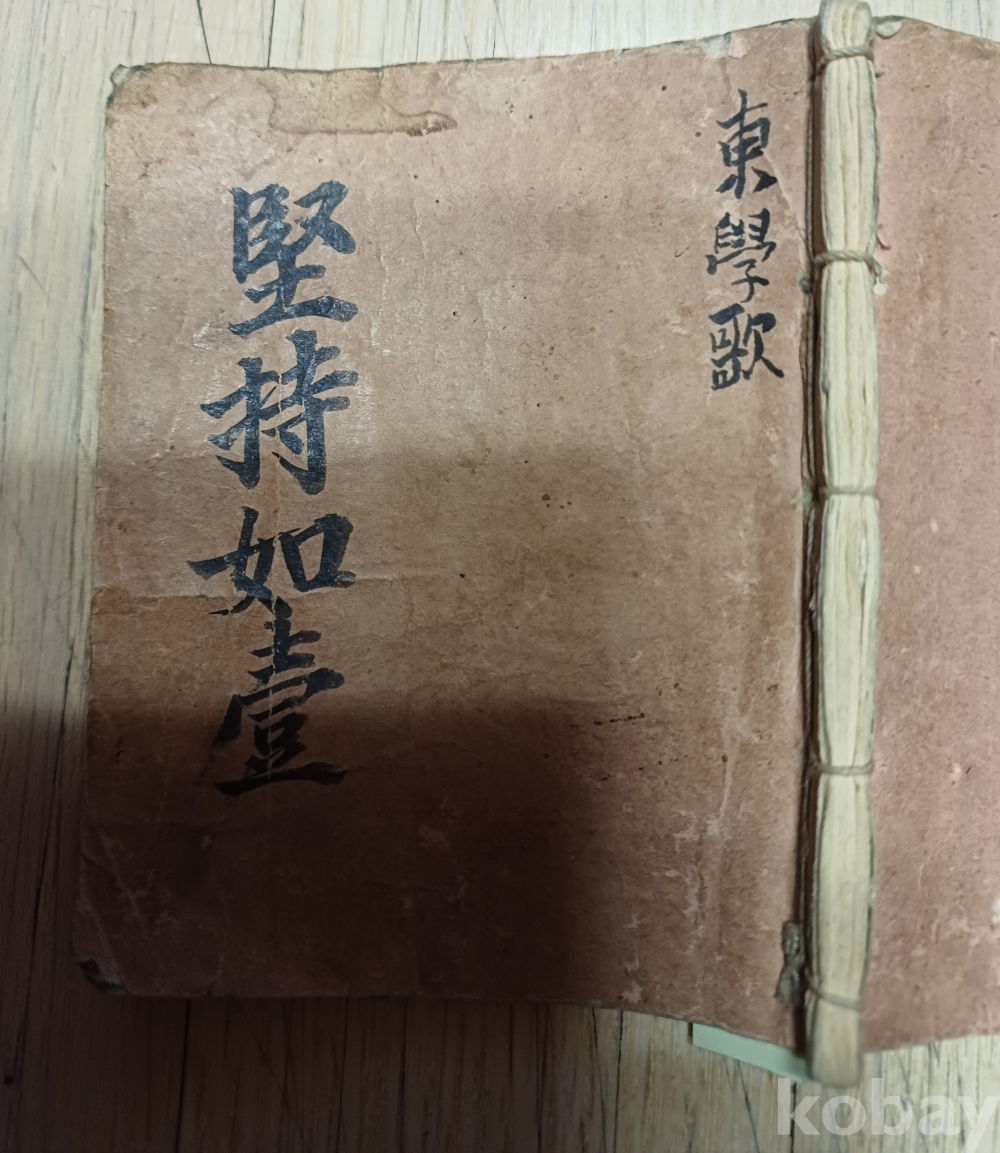 東學歌
堅持如壹
kobay